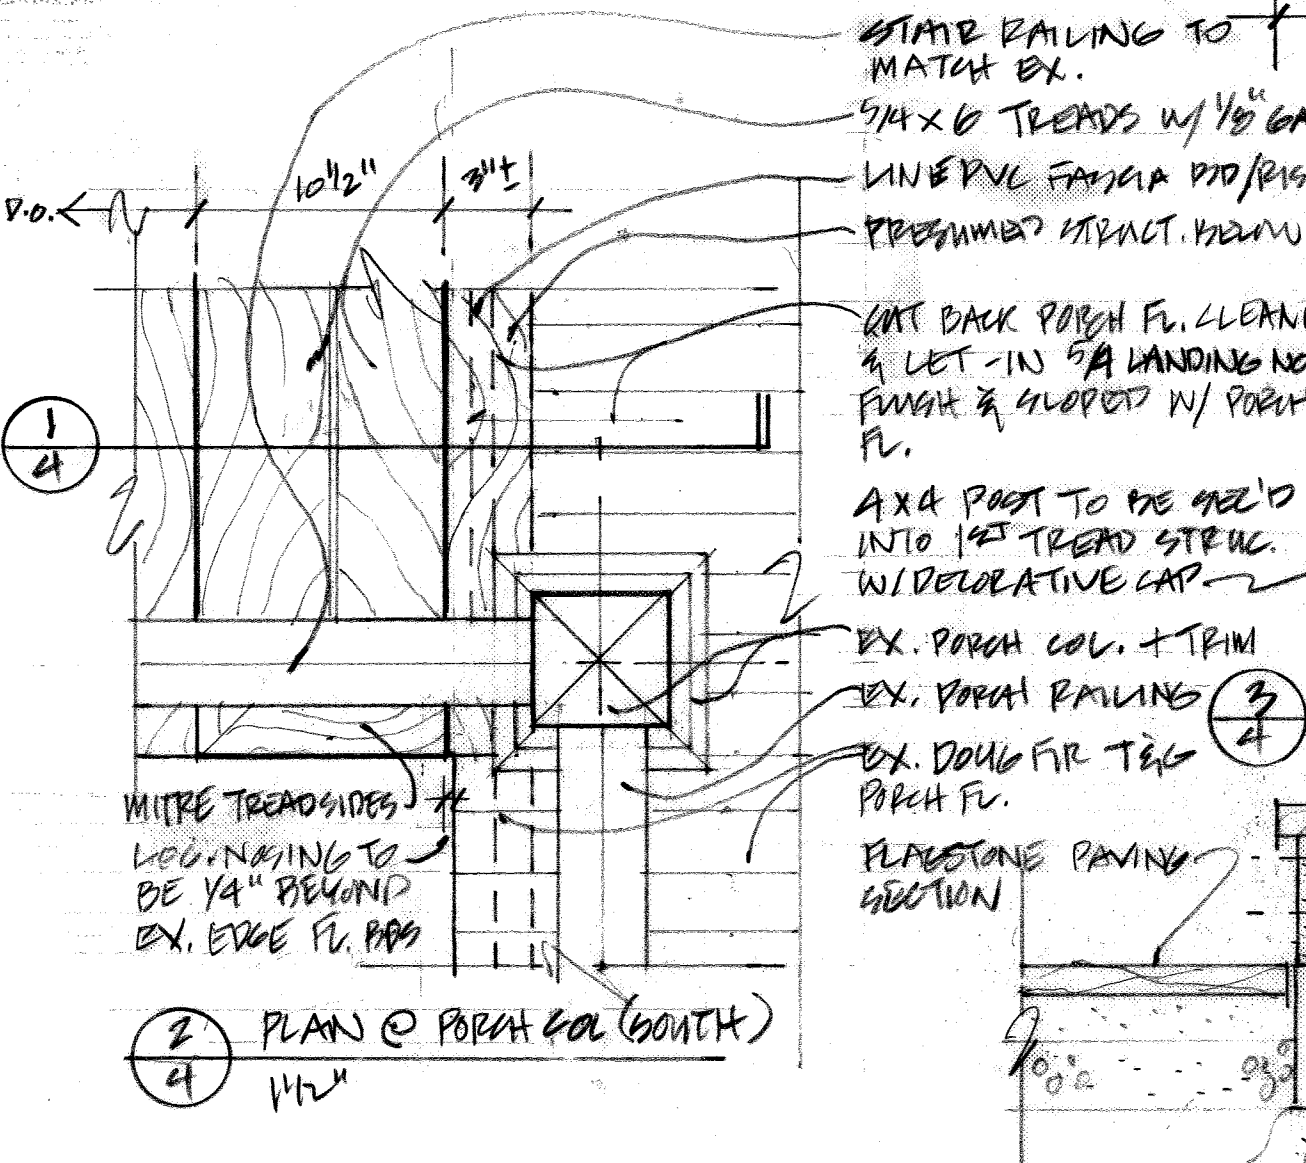 STAIR RAILING TO
MATCH EX.
5/4 x 6 TREADS W/ 1/8" GA
LINE PVC FASCIA BD/RIS
PRESUMED STRUCT. BELOW
CUT BACK PORCH FL. CLEAN
& LET-IN 5/4 LANDING NO
FLUSH & SLOPED W/ PORCH
FL.
4x4 POST TO BE SEC'D
INTO 1ST TREAD STRUC.
W/DECORATIVE CAP.
EX. PORCH COL. + TRIM
EX. PORCH RAILING
EX. DOUG FIR T&G
PORCH FL.
FLAGSTONE PAVING
SECTION
10 1/2"
3"±
P.O.
1
4
MITRE TREADSIDES
LOC. NOSING TO
BE 1/4" BEYOND
EX. EDGE FL. BDS
3
4
2
4
PLAN @ PORCH COL (SOUTH)
1 1/2"